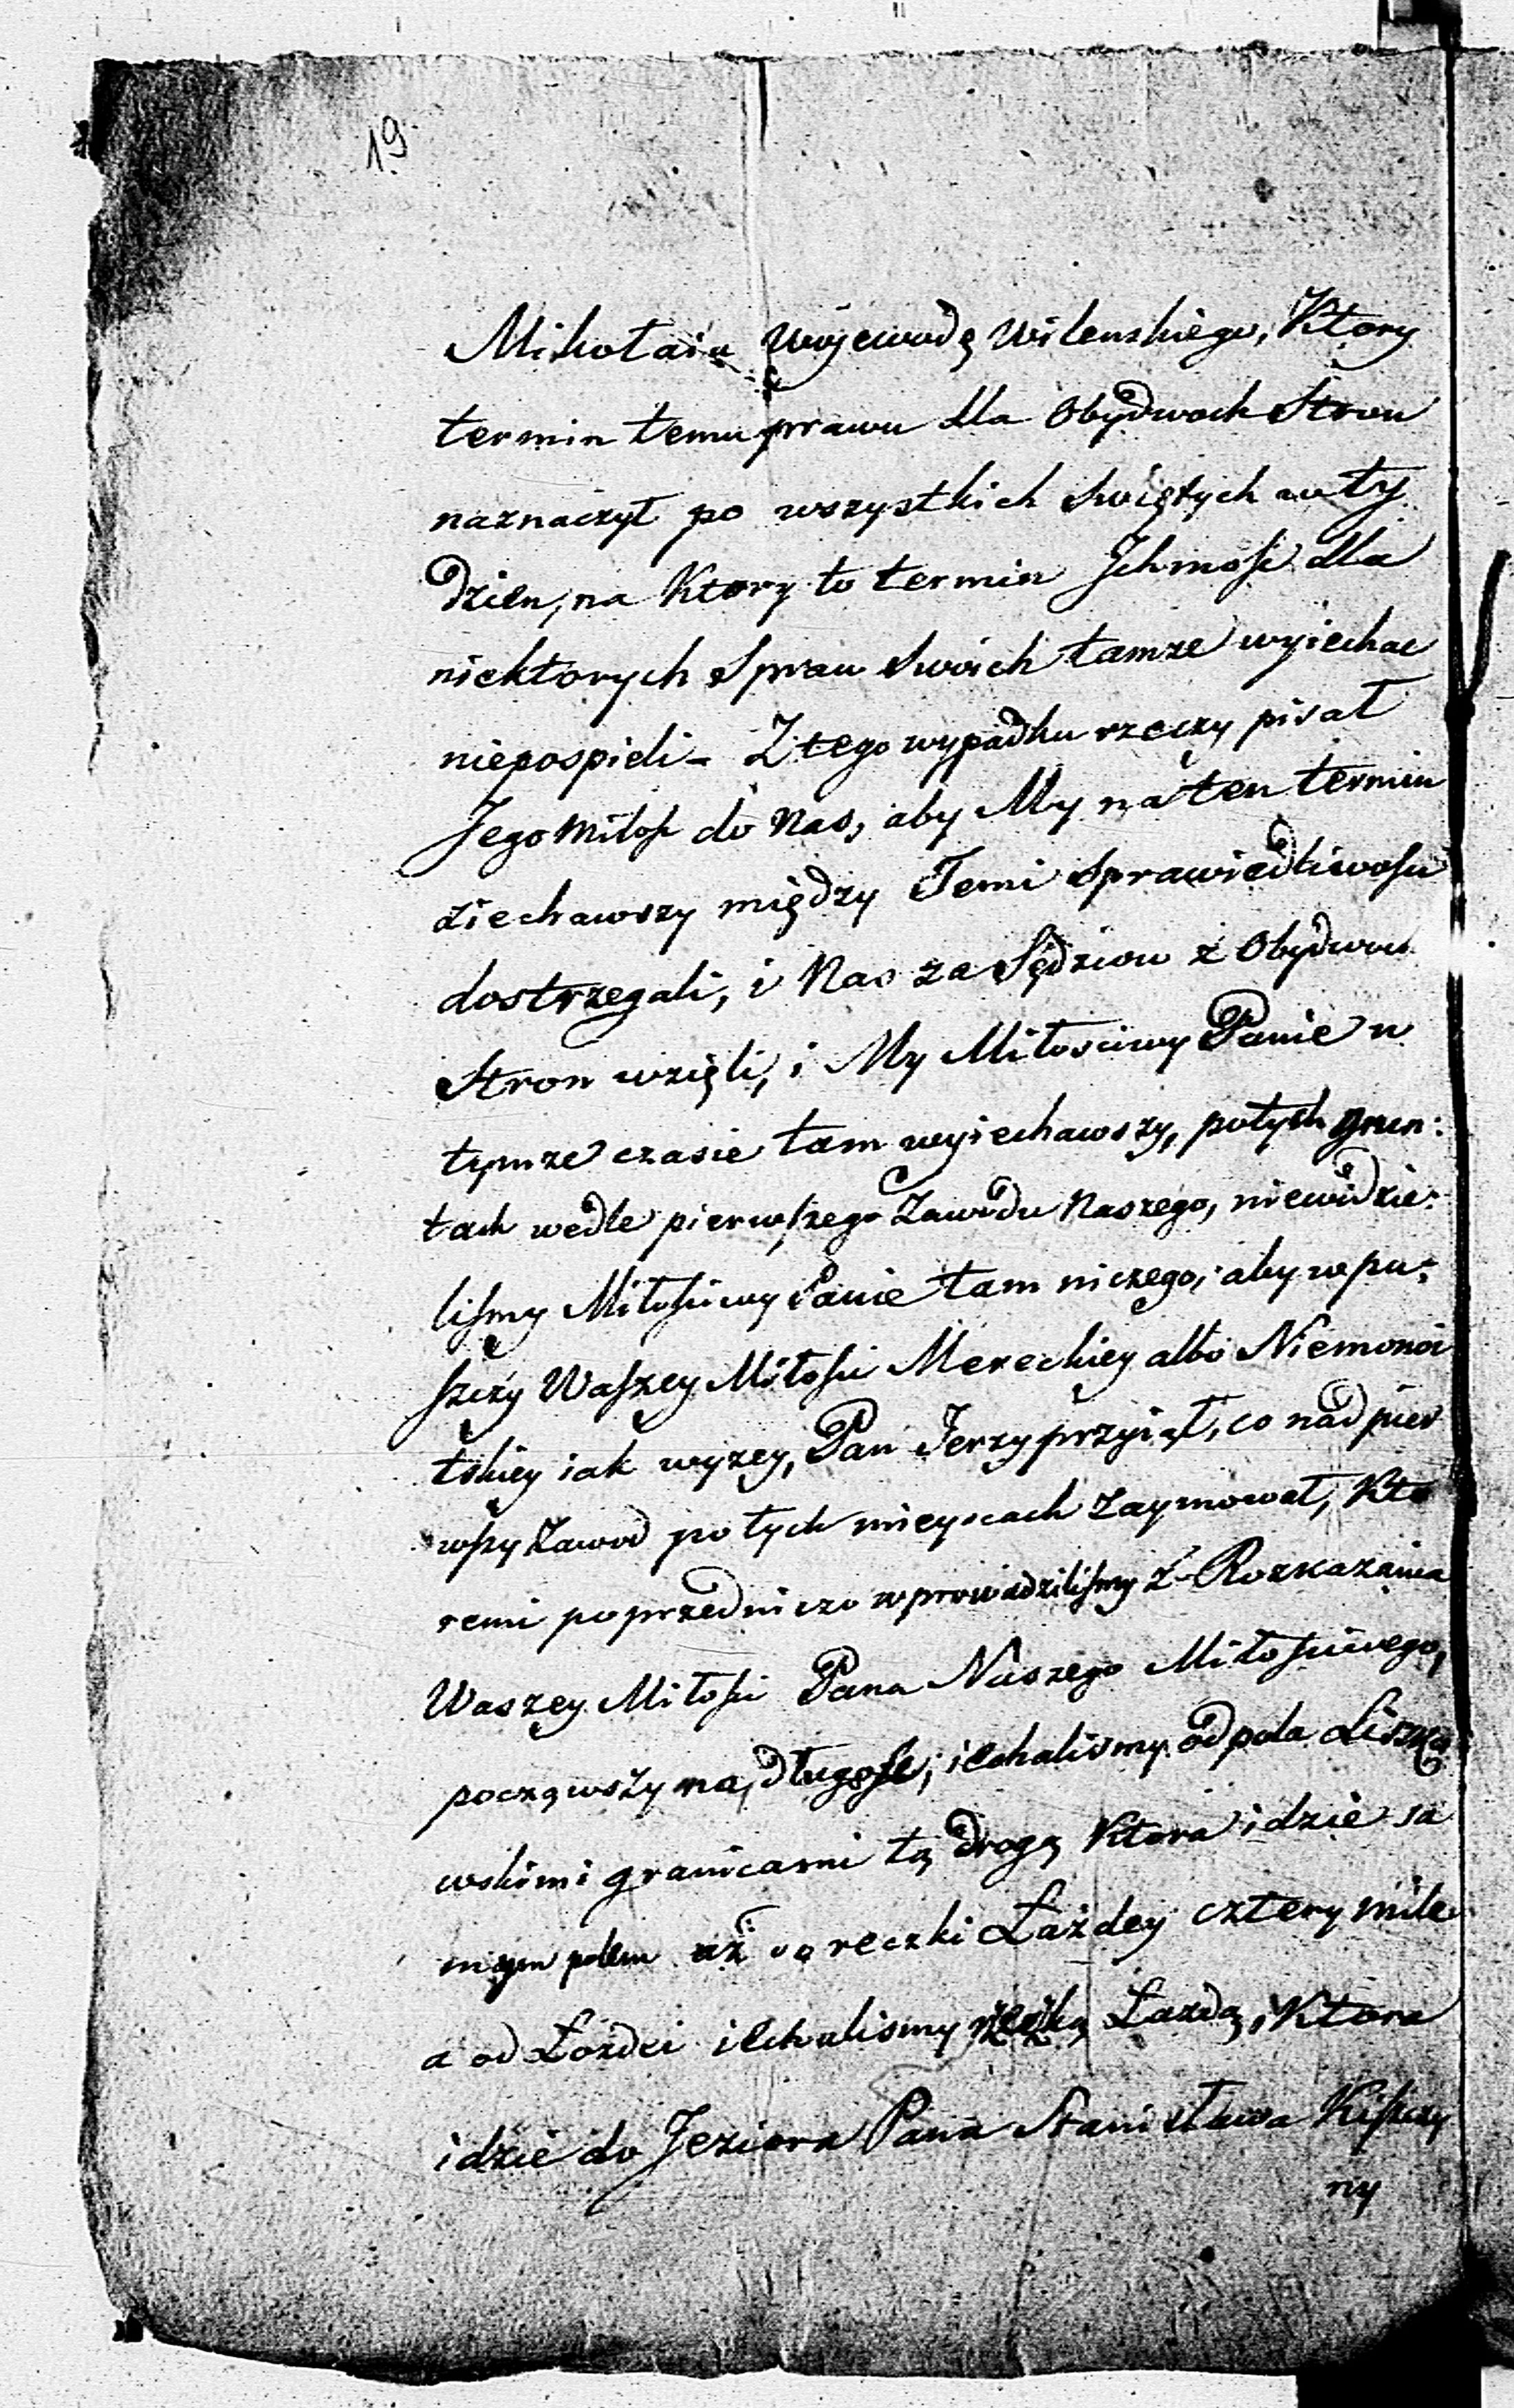 19
Mikołaia Wojewodę Wilenskiego, Ktory
termin temu prawu dla Obydwoch Stron
naznaczył po wszystkich Swiętych w ty
dzien, na Ktory to termin Jchmość dla
niektorych Spraw Swoich tamze wyiechac
niepospieli – Z tego wypadku rzeczy pisał
Jego Miłość do Nas, aby My na ten termin
ziechawszy między Temi Sprawiedliwości
dostrzegali, i Nas za Sędziow z Obydwoch
Stron wzięli, i My Miłosciwy Panie w
tymze czasie tam wyiechawszy, potych grun:
tach wedle pierwszego Zawodu Naszego, niewidzie:
liśmy Miłościwy Panie tam niczego, aby w pu:
szczy Waszey Miłości Mereckiey albo Niemonoi
tskiey iak wyzey, Pan Jerzy przyiął, co nad pier
wszy Zawod po tych mieyscach Zaymował, Kto
remi poprzedniczo wprowadziliśmy z Rozkazania
Waszey Miłości Pana Naszego Miłościwego,
począwszy na, długość, iechalismy od pola Liszko
wskimi granicami tą drogą Ktora idzie sa
mym polem aż do reczki Łażdey cztery mile
a od Łozdei iechalismy rzeczką Łazdą, Ktora
idzie do Jeziora Pana Stanisława Kiszczy
ny